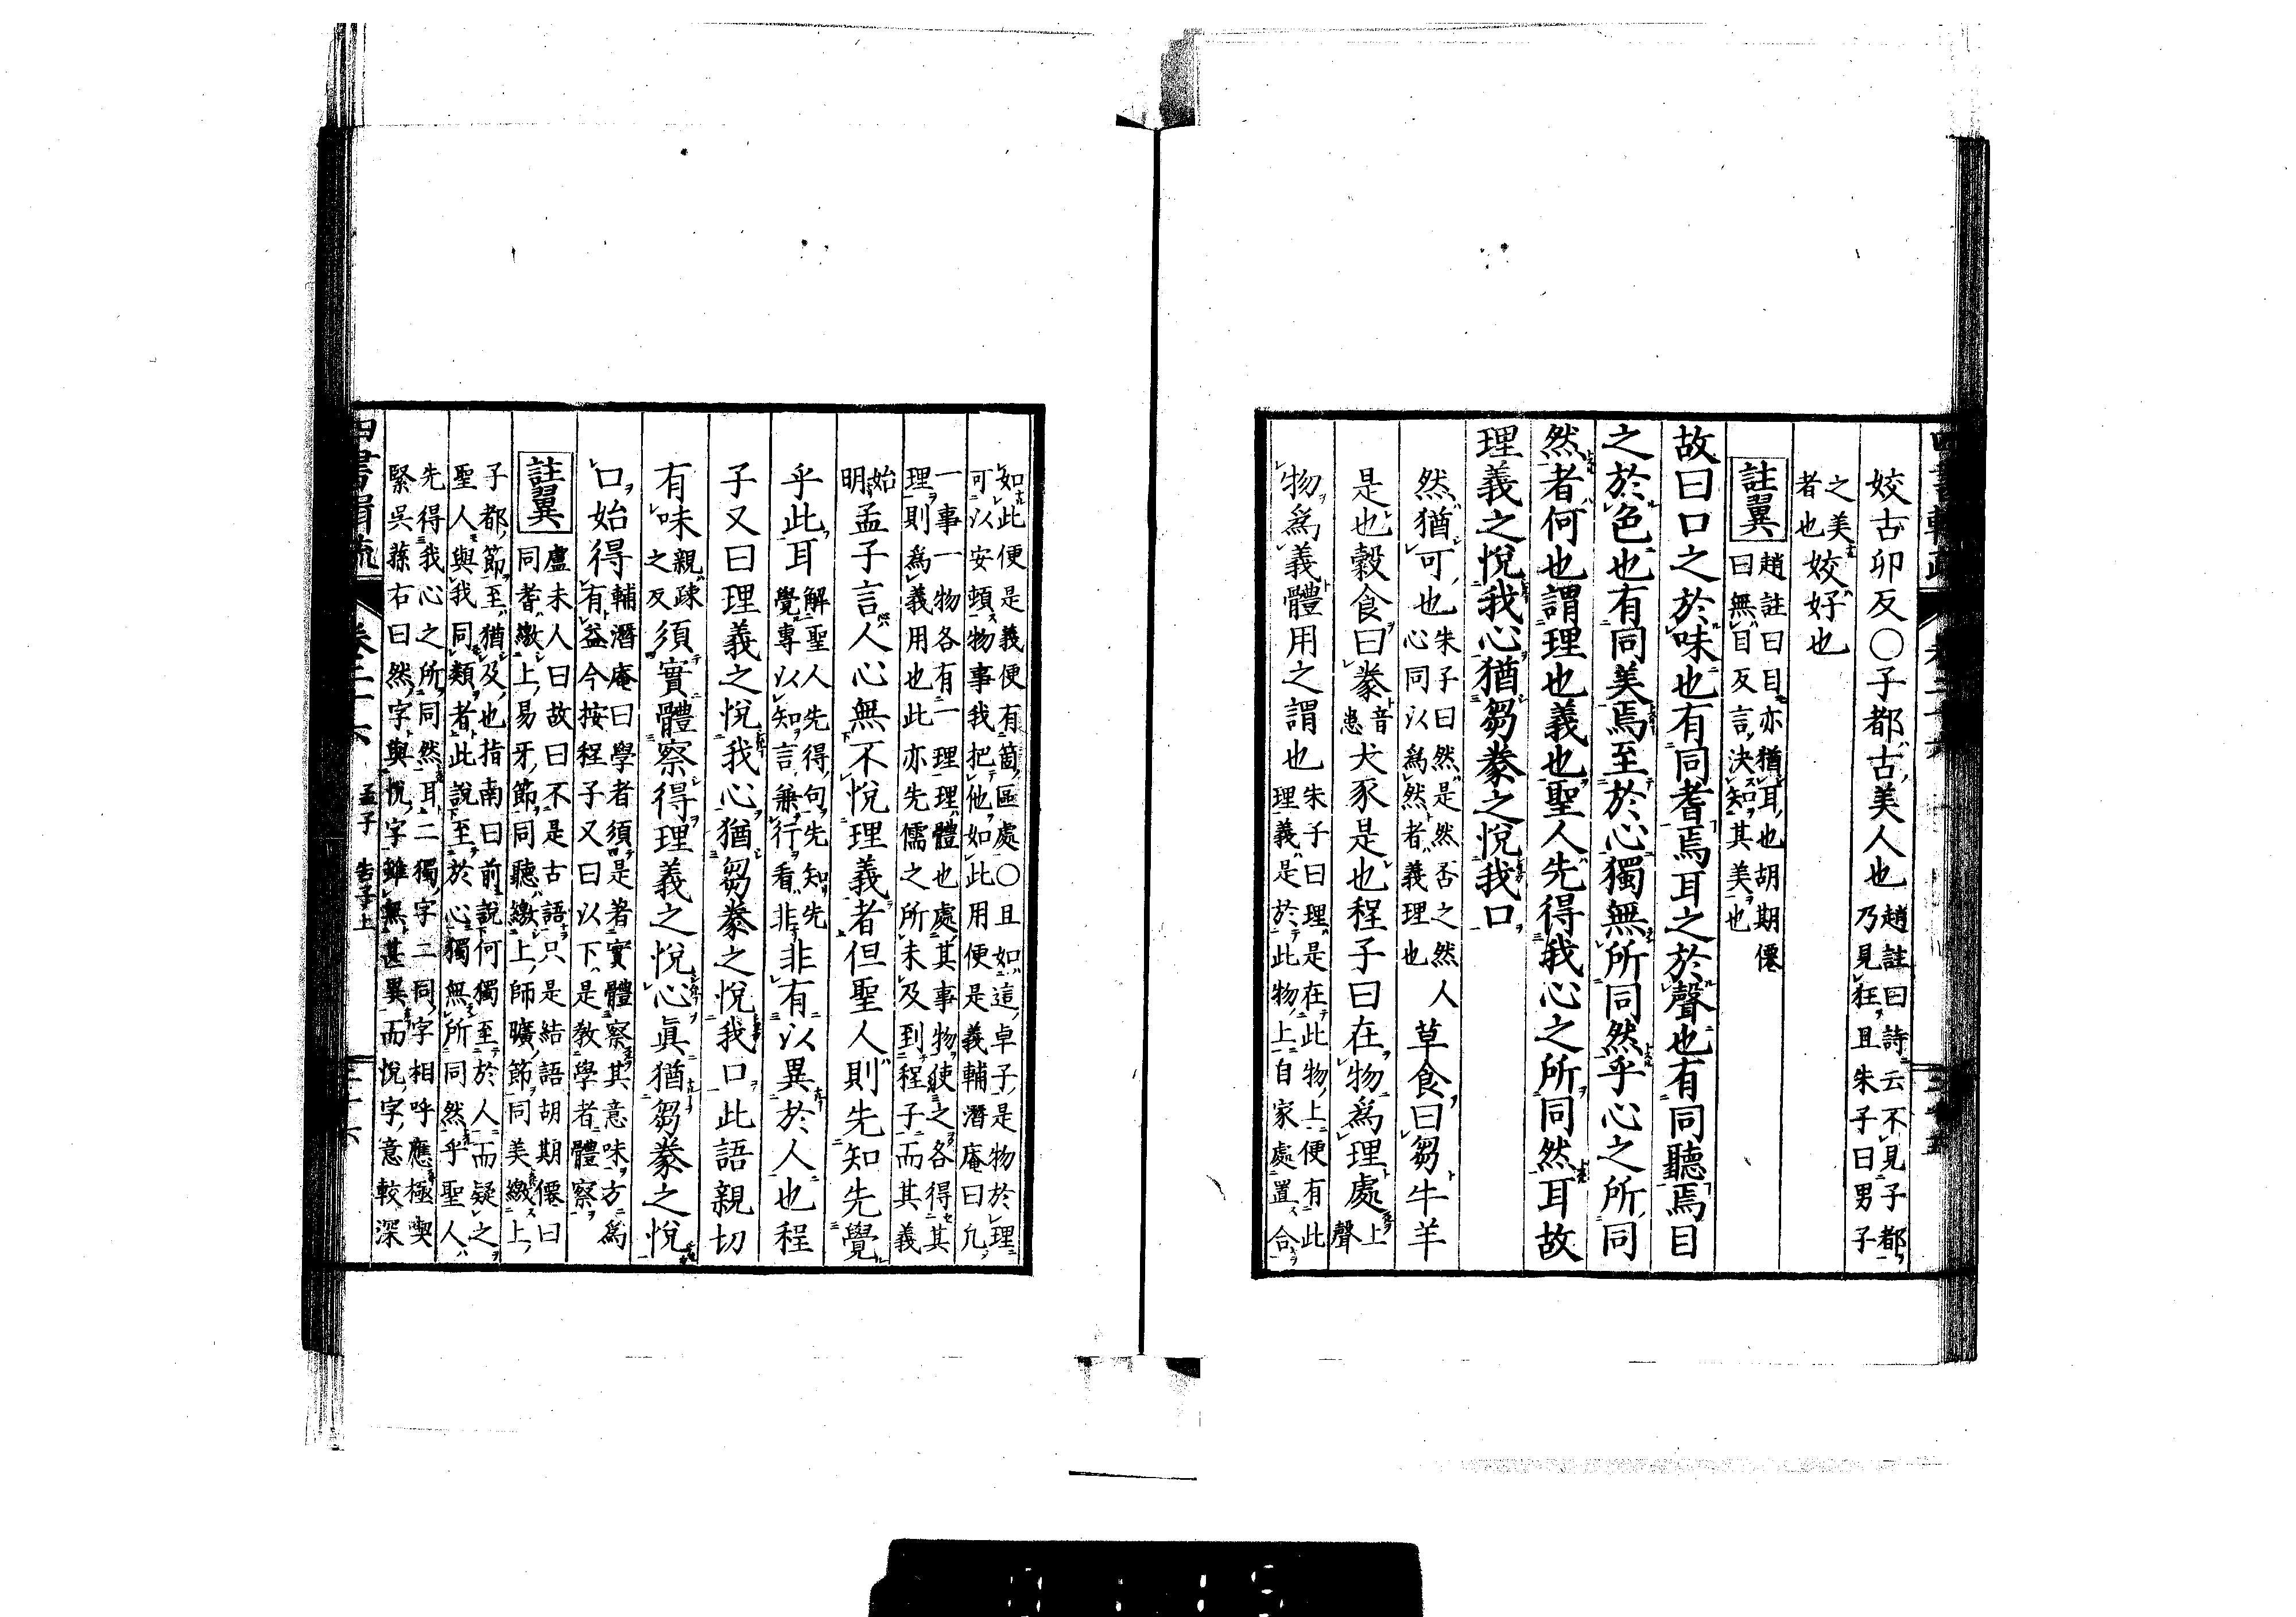 姣古卯反○子都古美人也趙註曰詩云不見子都
乃見狂且朱子曰男子
之美
者也姣好也
註翼趙註曰目亦猶耳也胡期僊
曰無目反言決知其美也
故曰口之於味也有同耆焉耳之於聲也有同聽焉目
之於色也有同美焉至於心獨無所同然乎心之所同
然者何也謂理也義也聖人先得我心之所同然耳故
理義之悅我心猶芻豢之悅我口
然猶可也朱子曰然是然否之然人
心同以爲然者義理也
草食曰芻牛羊
是也穀食曰豢音
患
犬豕是也程子曰在物爲理處上
聲
物爲義體用之謂也朱子曰理是在此物上便有此
理義是於此物上自家處置合
如此便是義便有箇區處○且如這卓子是物於理
可以安頓物事我把他如此用便是義輔潛庵曰凡
一事一物各有一理理體也處其事物使之各得其
理則爲義用也此亦先儒之所未及到程子而其義
始
明
孟子言人心無不悅理義者但聖人則先知先覺
乎此耳解聖人先得句先知先
覺專以知言兼行看非
非有以異於人也程
子又曰理義之悅我心猶芻豢之悅我口此語親切
有味親疎
之反
須實體察得理義之悅心眞猶芻豢之悅
口始得輔潛庵曰學者須是著實體察其意味方爲
有益今按程子又曰以下是教學者體察
註翼盧未人曰故曰不是古語只是結語胡期僊曰
同耆繳上易牙節同聽繳上師曠節同美繳上
子都節至猶及也指南曰前說何獨至於人而疑之
聖人與我同類者此說至於心獨無所同然乎聖人
先得我心之所同然耳二獨字二同字相呼應極喫
緊吳蓀右曰然字與悅字雖無甚異而悅字意較深
孟子 告子上